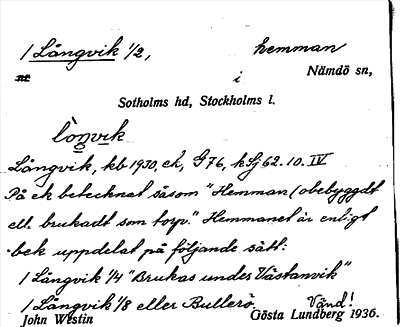 1 Långvik 1/2, hemman
i
Nämdö sn,
Sotholms hd, Stockholms l.
Långvik, kb. 1930, ek, G76, kSj 62.10. IV
På ek betecknat såsom "Hemman (obebyggdt
ell. brukadt som torp." Hemmanet är enligt
bek uppdelat på följande sätt:
1 Långvik 1/4 "Brukas under Västanvik"
1 Långvik 1/8 eller Bullerö. Vänd!
John Westin Gösta Lundberg 1936.